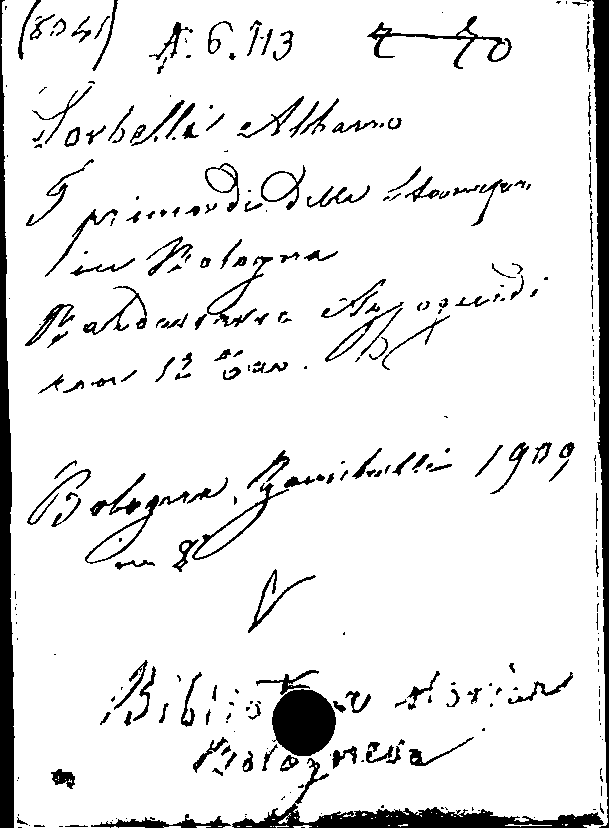 (8041) A. 6. 113
Sorbelli Albano
I primordi della Stampa
in Bologna
Baldassarre Azzoguidi
con 12 tav.
Bologna, Zanichelli 1909
in 8°
V
Biblioteca storica
Bolognese